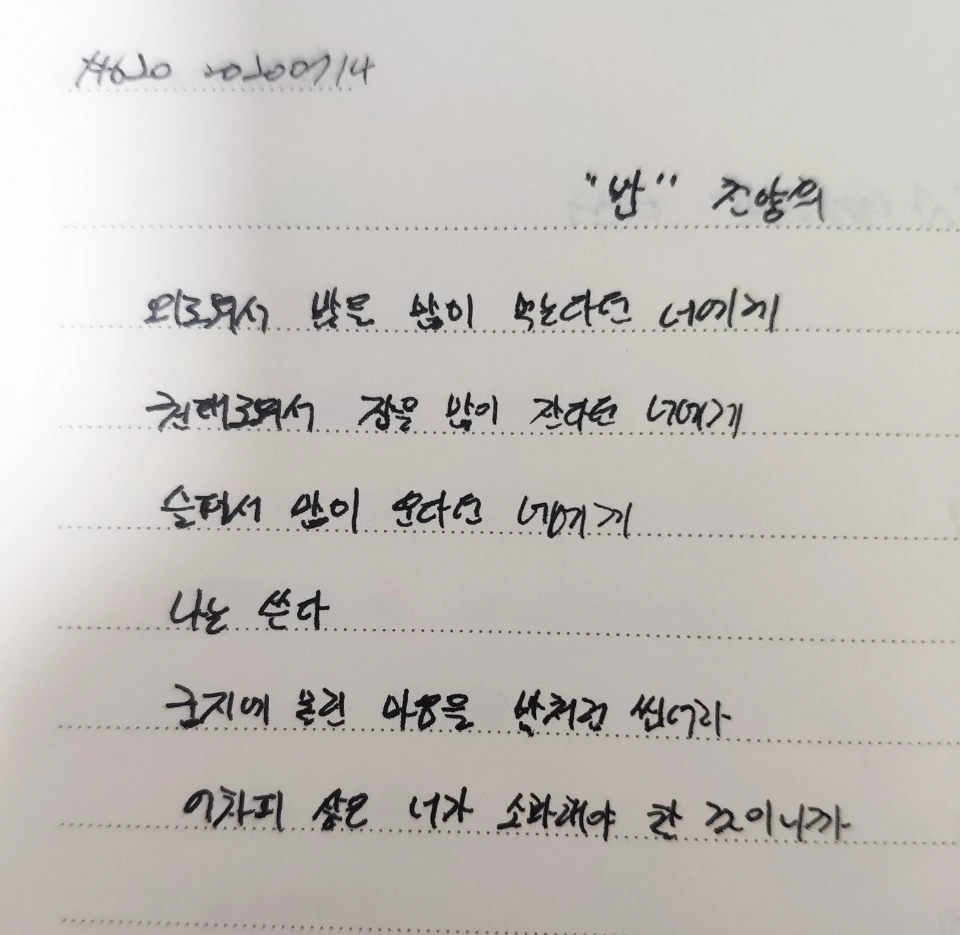 20200714
"밥" 천양희
외로워서 밥을 많이 먹는다던 너에게
권태로워서 잠을 많이 잔다던 너에게
슬퍼서 많이 운다던 너에게
나는 쓴다
궁지에 몰린 마음을 밥처럼 씹어라
어차피 삶은 너가 소화해야 할 것이니까